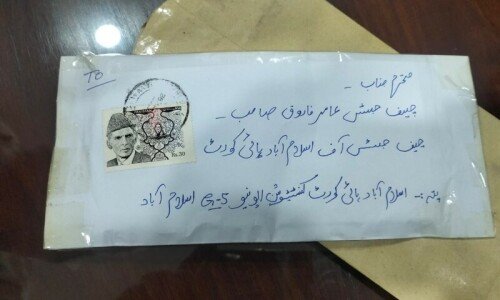 TO
محترم جناب -
چیف جسٹس عامر فاروق صاحب -
چیف جسٹس آف اسلام آباد ہائی کورٹ
پتہ :- اسلام آباد ہائی کورٹ کنسٹیٹیوشن ایونیو G-5 اسلام آباد
Rs.30